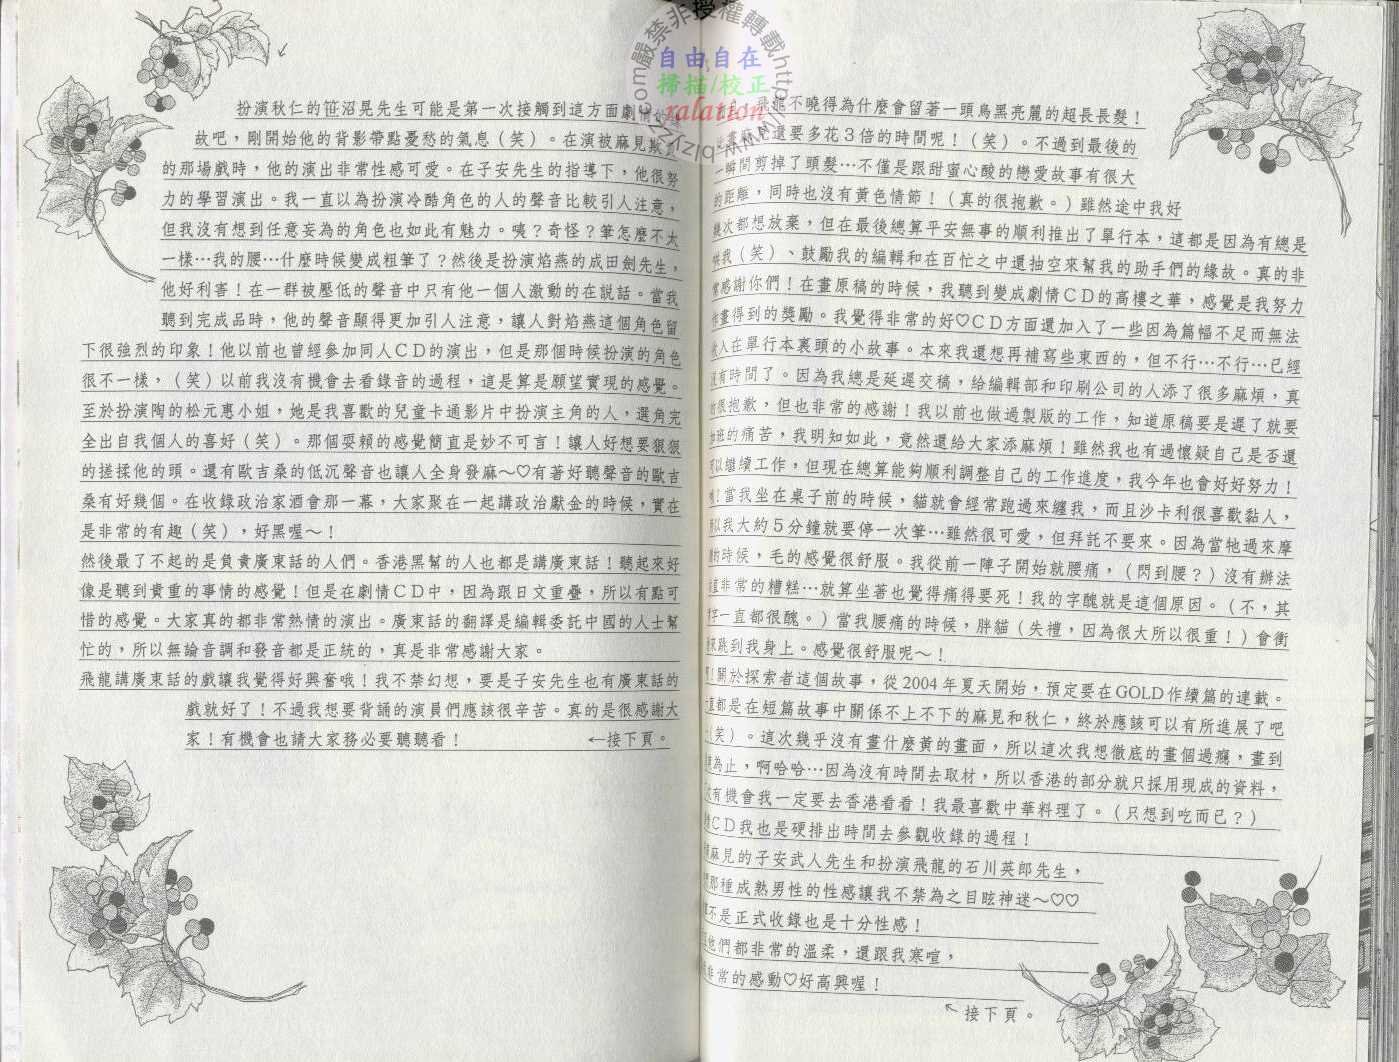 嚴禁非授權轉載
自由自在
掃描/校正
ralation
飛龍不曉得為什麼會留著一頭烏黑亮麗的超長長髮!
見還要多花3倍的時間呢!(笑)。不過到最後的
一瞬間剪掉了頭髮…不僅是跟甜蜜心酸的戀愛故事有很大
的距離,同時也沒有黃色情節!(真的很抱歉。)雖然途中我好
幾次都想放棄,但在最後總算平安無事的順利推出了單行本,這都是因為有總是
哄我(笑)、鼓勵我的編輯和在百忙之中還抽空來幫我的助手們的緣故。真的非
常感謝你們!在畫原稿的時候,我聽到變成劇情CD的高樓之華,感覺是我努力
作畫得到的獎勵。我覺得非常的好♡CD方面還加入了一些因為篇幅不足而無法
放入在單行本裏頭的小故事。本來我還想再補寫些東西的,但不行…不行…已經
沒有時間了。因為我總是延遲交稿,給編輯部和印刷公司的人添了很多麻煩,真
的很抱歉,但也非常的感謝!我以前也做過製版的工作,知道原稿要是遲了就要
加班的痛苦,我明知如此,竟然還給大家添麻煩!雖然我也有過懷疑自己是否還
可以繼續工作,但現在總算能夠順利調整自己的工作進度,我今年也會好好努力!
!當我坐在桌子前的時候,貓就會經常跑過來纏我,而且沙卡利很喜歡黏人,
所以我大約5分鐘就要停一次筆…雖然很可愛,但拜託不要來。因為當牠過來摩
的時候,毛的感覺很舒服。我從前一陣子開始就腰痛,(閃到腰?)沒有辦法
直非常的糟糕…就算坐著也覺得痛得要死!我的字醜就是這個原因。(不,其
字一直都很醜。)當我腰痛的時候,胖貓(失禮,因為很大所以很重!)會衝
來跳到我身上。感覺很舒服呢~!
!關於探索者這個故事,從2004年夏天開始,預定要在GOLD作續篇的連載。
一直都是在短篇故事中關係不上不下的麻見和秋仁,終於應該可以有所進展了吧
(笑)。這次幾乎沒有畫什麼黃的畫面,所以這次我想徹底的畫個過癮,畫到
為止,啊哈哈…因為沒有時間去取材,所以香港的部分就只採用現成的資料,
次有機會我一定要去香港看看!我最喜歡中華料理了。(只想到吃而已?)
情CD我也是硬排出時間去參觀收錄的過程!
麻見的子安武人先生和扮演飛龍的石川英郎先生,
那種成熟男性的性感讓我不禁為之目眩神迷~♡♡
不是正式收錄也是十分性感!
他們都非常的溫柔,還跟我寒喧,
非常的感動♡好高興喔!
↖接下頁。
扮演秋仁的笹沼晃先生可能是第一次接觸到這方面劇情的緣
故吧,剛開始他的背影帶點憂愁的氣息(笑)。在演被麻見欺
的那場戲時,他的演出非常性感可愛。在子安先生的指導下,他很努
力的學習演出。我一直以為扮演冷酷角色的人的聲音比較引人注意,
但我沒有想到任意妄為的角色也如此有魅力。咦?奇怪?筆怎麼不太
一樣…我的腰…什麼時候變成粗筆了?然後是扮演焰燕的成田劍先生,
他好利害!在一群被壓低的聲音中只有他一個人激動的在說話。當我
聽到完成品時,他的聲音顯得更加引人注意,讓人對焰燕這個角色留
下很強烈的印象!他以前也曾經參加同人CD的演出,但是那個時候扮演的角色
很不一樣,(笑)以前我沒有機會去看錄音的過程,這是算是願望實現的感覺。
至於扮演陶的松元惠小姐,她是我喜歡的兒童卡通影片中扮演主角的人,選角完
全出自我個人的喜好(笑)。那個耍賴的感覺簡直是妙不可言!讓人好想要狠狠
的搓揉他的頭。還有歐吉桑的低沉聲音也讓人全身發麻~♡有著好聽聲音的歐吉
桑有好幾個。在收錄政治家酒會那一幕,大家聚在一起講政治獻金的時候,實在
是非常的有趣(笑),好黑喔~!
然後最了不起的是負責廣東話的人們。香港黑幫的人也都是講廣東話!聽起來好
像是聽到貴重的事情的感覺!但是在劇情CD中,因為跟日文重疊,所以有點可
惜的感覺。大家真的都非常熱情的演出。廣東話的翻譯是編輯委託中國的人士幫
忙的,所以無論音調和發音都是正統的,真是非常感謝大家。
飛龍講廣東話的戲讓我覺得好興奮哦!我不禁幻想,要是子安先生也有廣東話的
戲就好了!不過我想要背誦的演員們應該很辛苦。真的是很感謝大
家!有機會也請大家務必要聽聽看!
←接下頁。